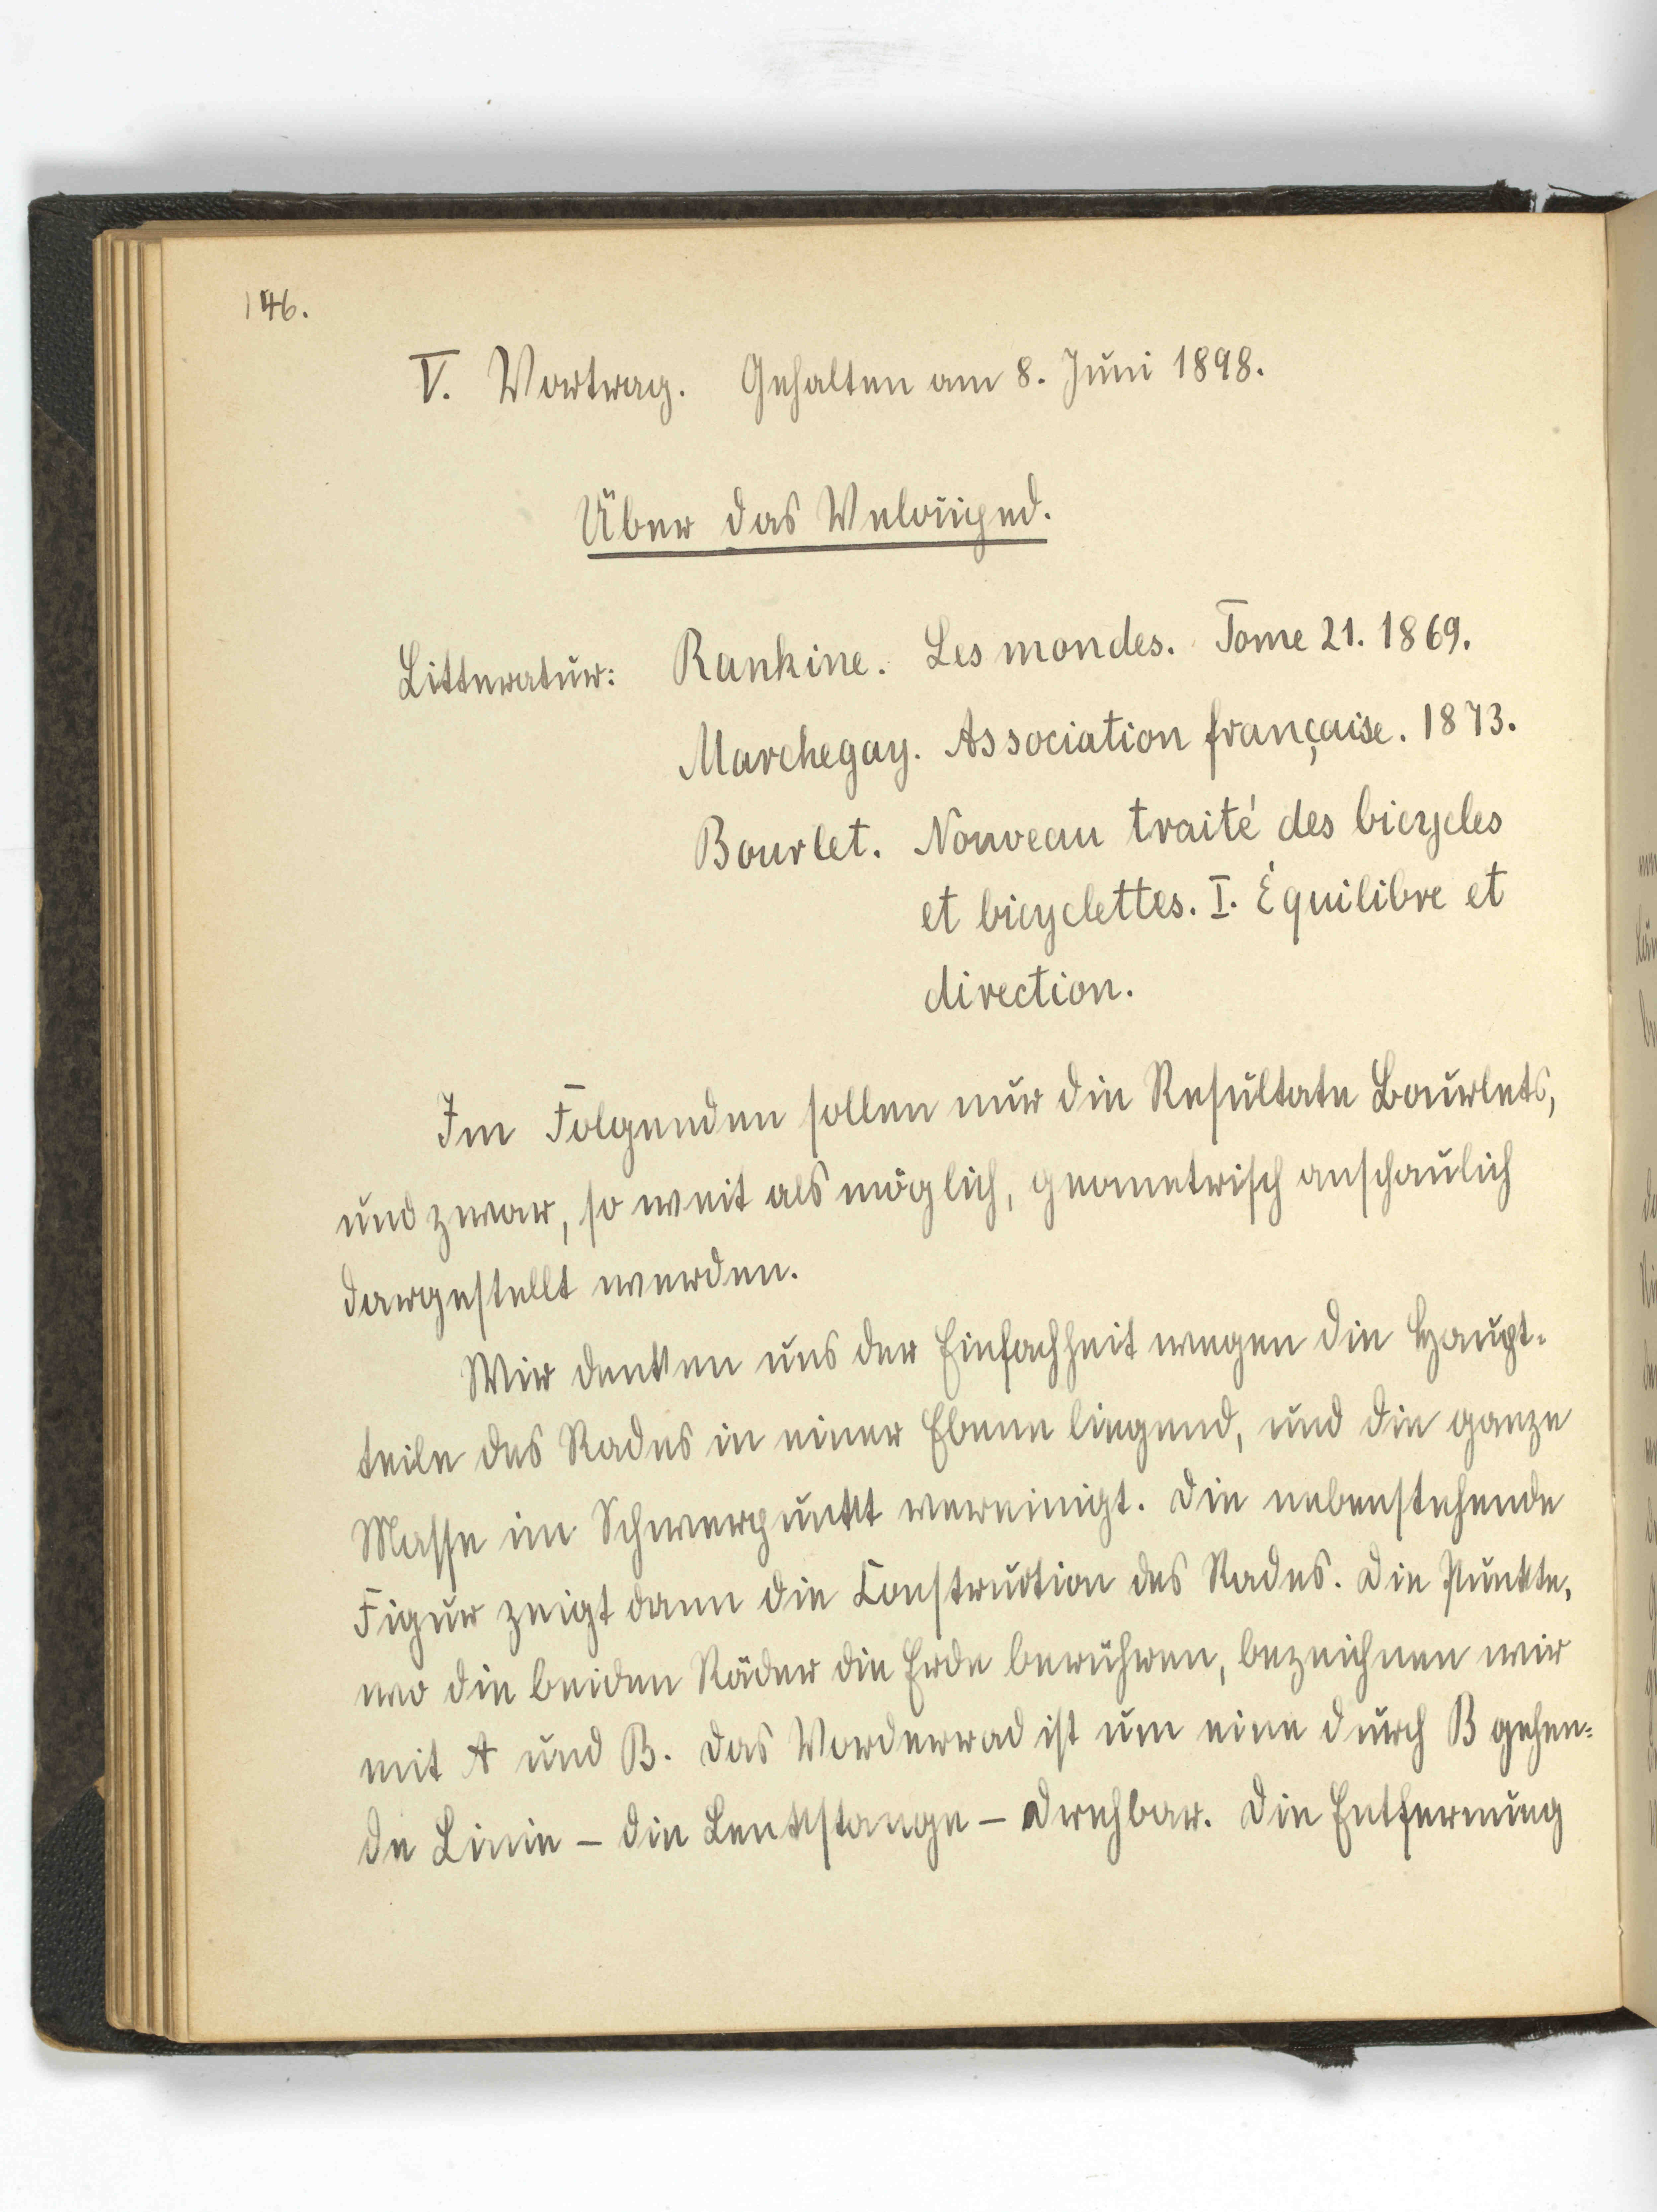 146.
V. Vortrag. Gehalten am 8. Juni 1898.
Über das Velociped.
Litteratur: Rankine. Les mondes. Tome 21. 1869.
Marchegay. Association française. 1873.
Bourlet. Nouveau traité des bicycles
et bicyclettes. I. Équilibre et
direction.
Im Folgenden sollen nur die Resultate Bourlets,
und zwar, so weit als möglich, geometrisch anschaulich
dargestellt werden.
Wir denken uns der Einfachheit wegen die Haupt-
teile des Rades in einer Ebene liegend, und die ganze
Masse im Schwerpunkt vereinigt. Die nebenstehende
Figur zeigt dann die Construction des Rades. Die Punkte,
wo die beiden Räder die Erde berühren, bezeichnen wir
mit A und B. Das Vorderrad ist um eine durch B gehen-
de Linie – die Lenkstange – drehbar. Die Entfernung